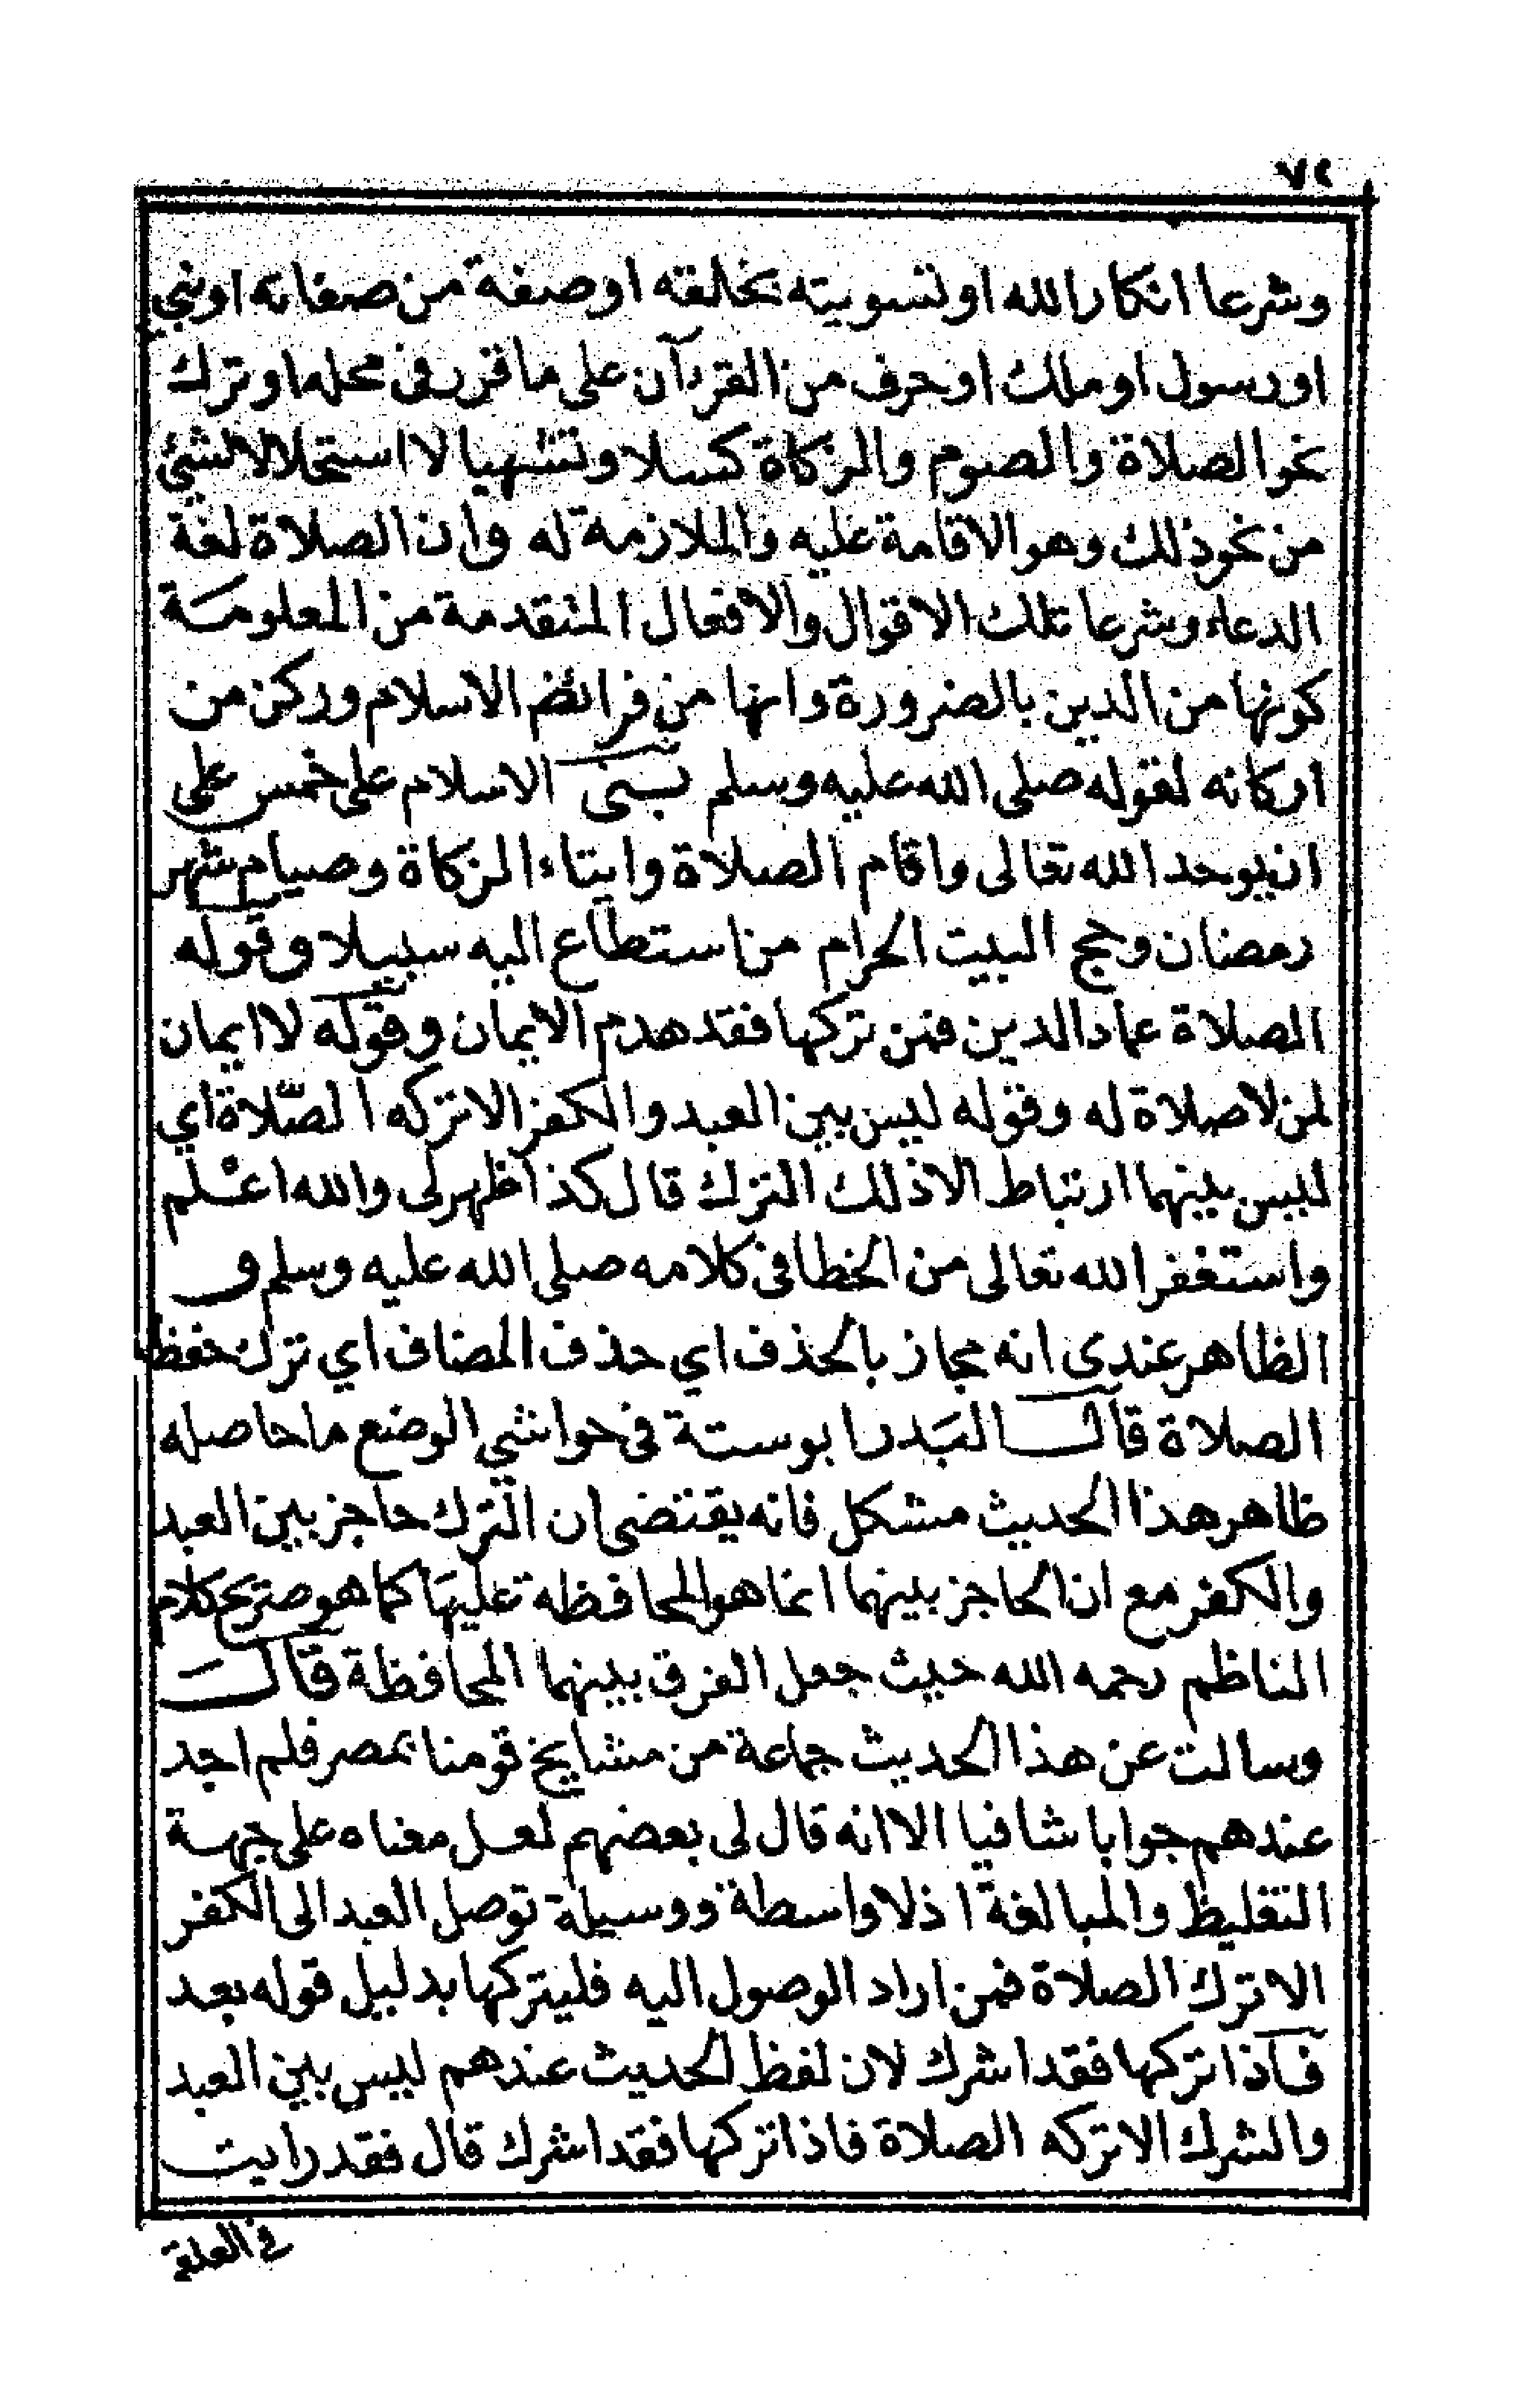 ٧٤
وشرعا انكار الله او تسويته بخالقه او صفة من صفاته او نبي
او رسول او ملك او حرف من القرءآن على ما قرر في محله او ترك
نحو الصلاة والصوم والزكاة كسلا وتشهيا لا استحلالا لشئ
من نحو ذلك وهو الاقامة عليه والملازمة له وان الصلاة لغة
الدعاء وشرعا تلك الاقوال والافعال المتقدمة من المعلومة
كونها من الدين بالضرورة وانها من فرائض الاسلام وركن من
اركانه لقوله صلى الله عليه وسلم بنى الاسلام على خمس على
ان يوحد الله تعالى واقام الصلاة وايتاء الزكاة وصيام شهر
رمضان وحج البيت الحرام من استطاع اليه سبيلا وقوله
الصلاة عماد الدين فمن تركها فقد هدم الايمان وقوله لا ايمان
لمن لا صلاة له وقوله ليس بين العبد والكفر الا تركه الصّلاة اي
ليس بينهما ارتباط الا ذلك الترك قال كذا ظهر لى والله اعلم
واستغفر الله تعالى من الخطا في كلامه صلى الله عليه وسلم و
الظاهر عندى انه مجاز بالحذف اي حذف المضاف اي ترك حفظ
الصلاة قال البدر ابو ستة في حواشي الوضع ما حاصله
ظاهر هذا الحديث مشكل فانه يقتضى ان الترك حاجز بين العبد
والكفر مع ان الحاجز بينهما انما هو المحافظة عليها كما هو صريح كلام
الناظم رحمه الله حيث جعل الفرق بينهما المحافظة قال
وسالت عن هذا الحديث جماعة من مشايخ قومنا بمصر فلم اجد
عندهم جوابا شافيا الا انه قال لى بعضهم لعل معناه على جهة
التغليظ والمبالغة اذ لا واسطة ووسيلة توصل العبد الى الكفر
الا ترك الصلاة فمن اراد الوصول اليه فليتركها بدليل قوله بعد
فاذا تركها فقد اشرك لان لفظ الحديث عندهم ليس بين العبد
والشرك الا تركه الصلاة فاذا تركها فقد اشرك قال فقد رايت
في العلقمي